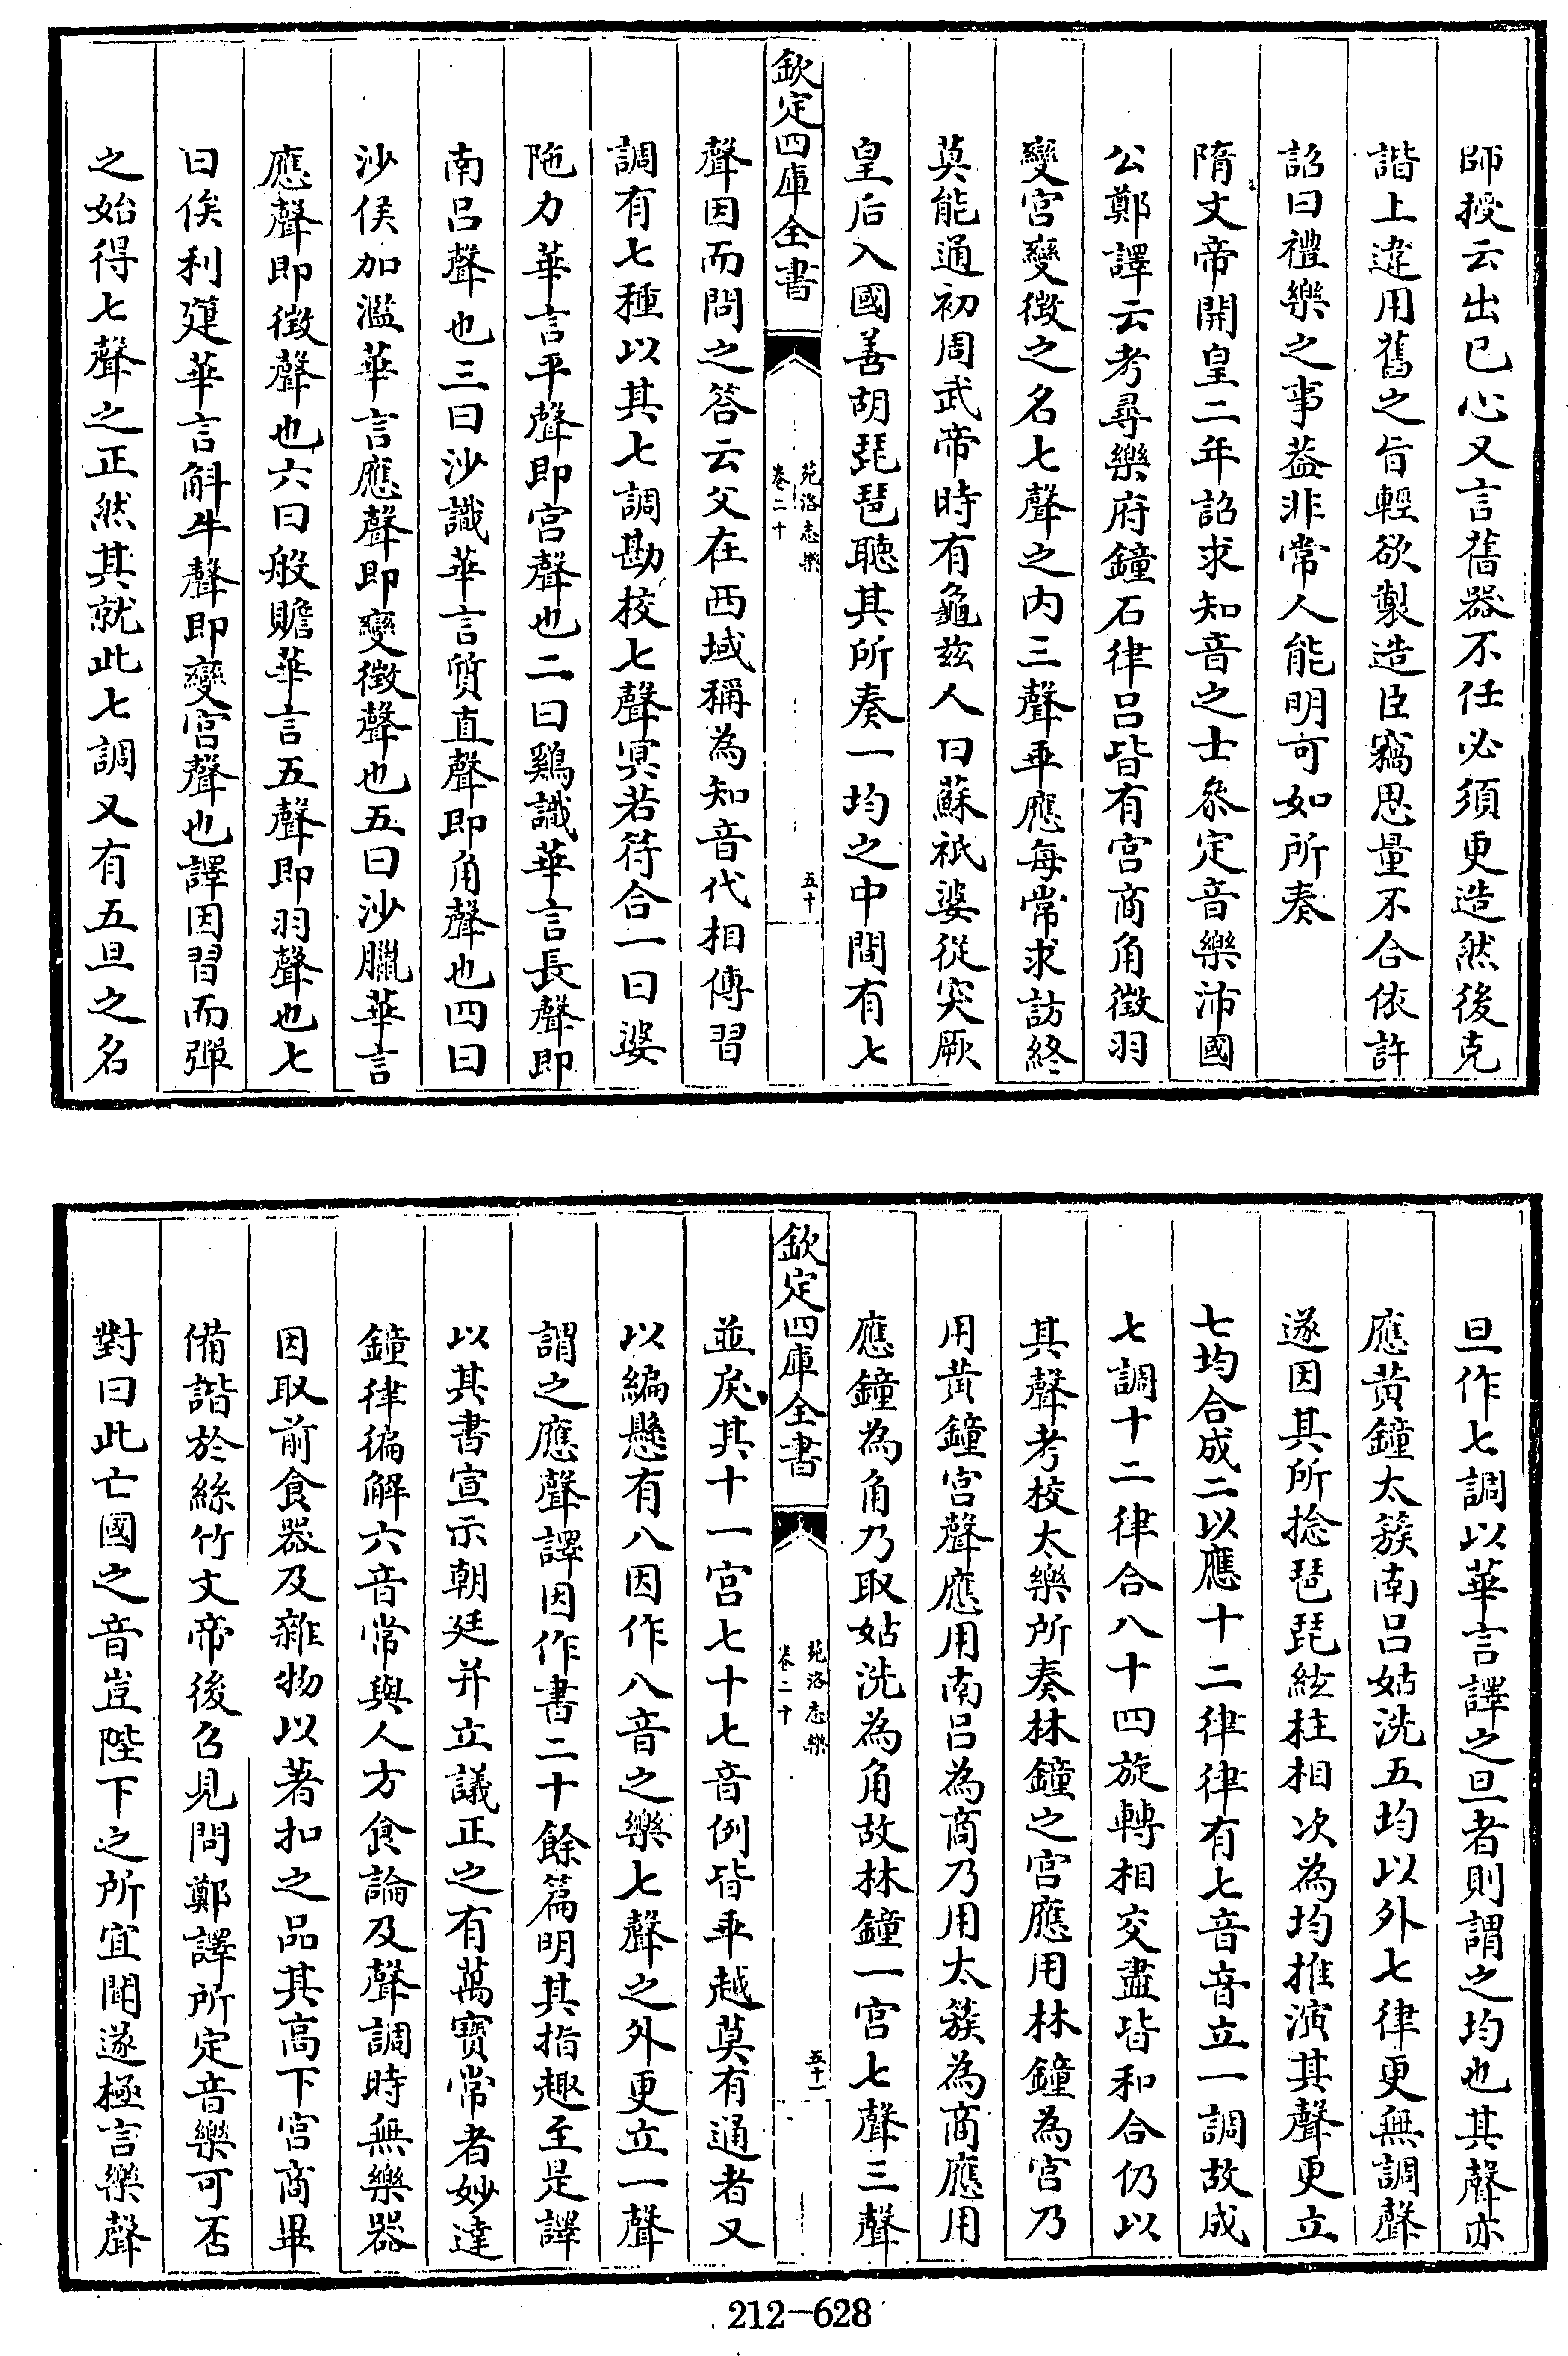 師授云出已心又言舊器不任必須更造然後克
諧上違用舊之旨輕欲製造臣竊思量不合依許
詔曰禮樂之事葢非常人能明可如所奏
隋文帝開皇二年詔求知音之士叅定音樂沛國
公鄭譯云考尋樂府鐘石律呂皆有宮商角徵羽
變宮變徵之名七聲之內三聲乖應每常求訪終
莫能通初周武帝時有龜茲人曰蘇祗婆從突厥
皇后入國善胡琵琶聽其所奏一均之中間有七
欽定四庫全書
苑洛志樂
卷二十
五十
聲因而問之答云父在西域稱為知音代相傳習
調有七種以其七調勘校七聲冥若符合一曰娑
陁力華言平聲即宮聲也二曰鷄識華言長聲即
南呂聲也三曰沙識華言質直聲即角聲也四曰
沙侯加濫華言應聲即變徵聲也五曰沙臘華言
應聲即徵聲也六曰般贍華言五聲即羽聲也七
曰俟利䈎華言斛牛聲即變宮聲也譯因習而彈
之始得七聲之正然其就此七調又有五旦之名
旦作七調以華言譯之旦者則謂之均也其聲亦
應黃鐘太簇南呂姑洗五均以外七律更無調聲
遂因其所捻琵琶絃柱相次為均推演其聲更立
七均合成二以應十二律律有七音音立一調故成
七調十二律合八十四旋轉相交盡皆和合仍以
其聲考校太樂所奏林鐘之宮應用林鐘為宮乃
用黃鐘宮聲應用南呂為商乃用太簇為商應用
應鐘為角乃取姑洗為角故林鐘一宮七聲三聲
欽定四庫全書
苑洛志樂
卷二十
五十一
並戾其十一宮七十七音例皆乖越莫有通者又
以編懸有八因作八音之樂七聲之外更立一聲
謂之應聲譯因作書二十餘篇明其指趣至是譯
以其書宣示朝廷并立議正之有萬寶常者妙達
鐘律徧解六音常與人方食論及聲調時無樂器
因取前食器及雜物以著扣之品其高下宮商畢
備諧於絲竹文帝後召見問鄭譯所定音樂可否
對曰此亡國之音豈陛下之所宜聞遂極言樂聲
212-628